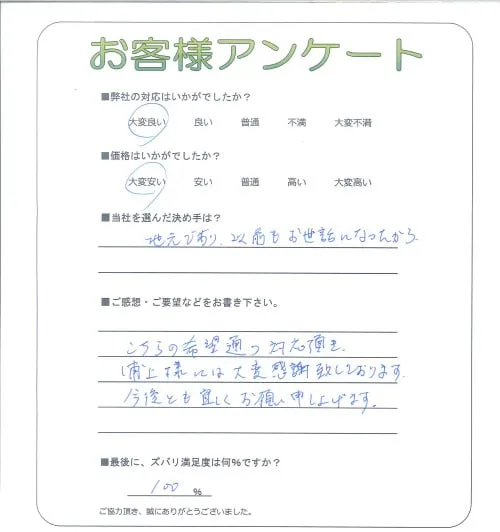 お客様アンケート
■弊社の対応はいかがでしたか？
大変良い 良い 普通 不満 大変不満
■価格はいかがでしたか？
大変安い 安い 普通 高い 大変高い
■当社を選んだ決め手は？
地元であり、以前もお世話になったから
■ご感想・ご要望などをお書き下さい。
こちらの希望通り対応頂き、
浦上様には大変感謝致しております。
今後とも宜しくお願い申し上げます。
■最後に、ズバリ満足度は何％ですか？
100 ％
ご協力頂き、誠にありがとうございました。